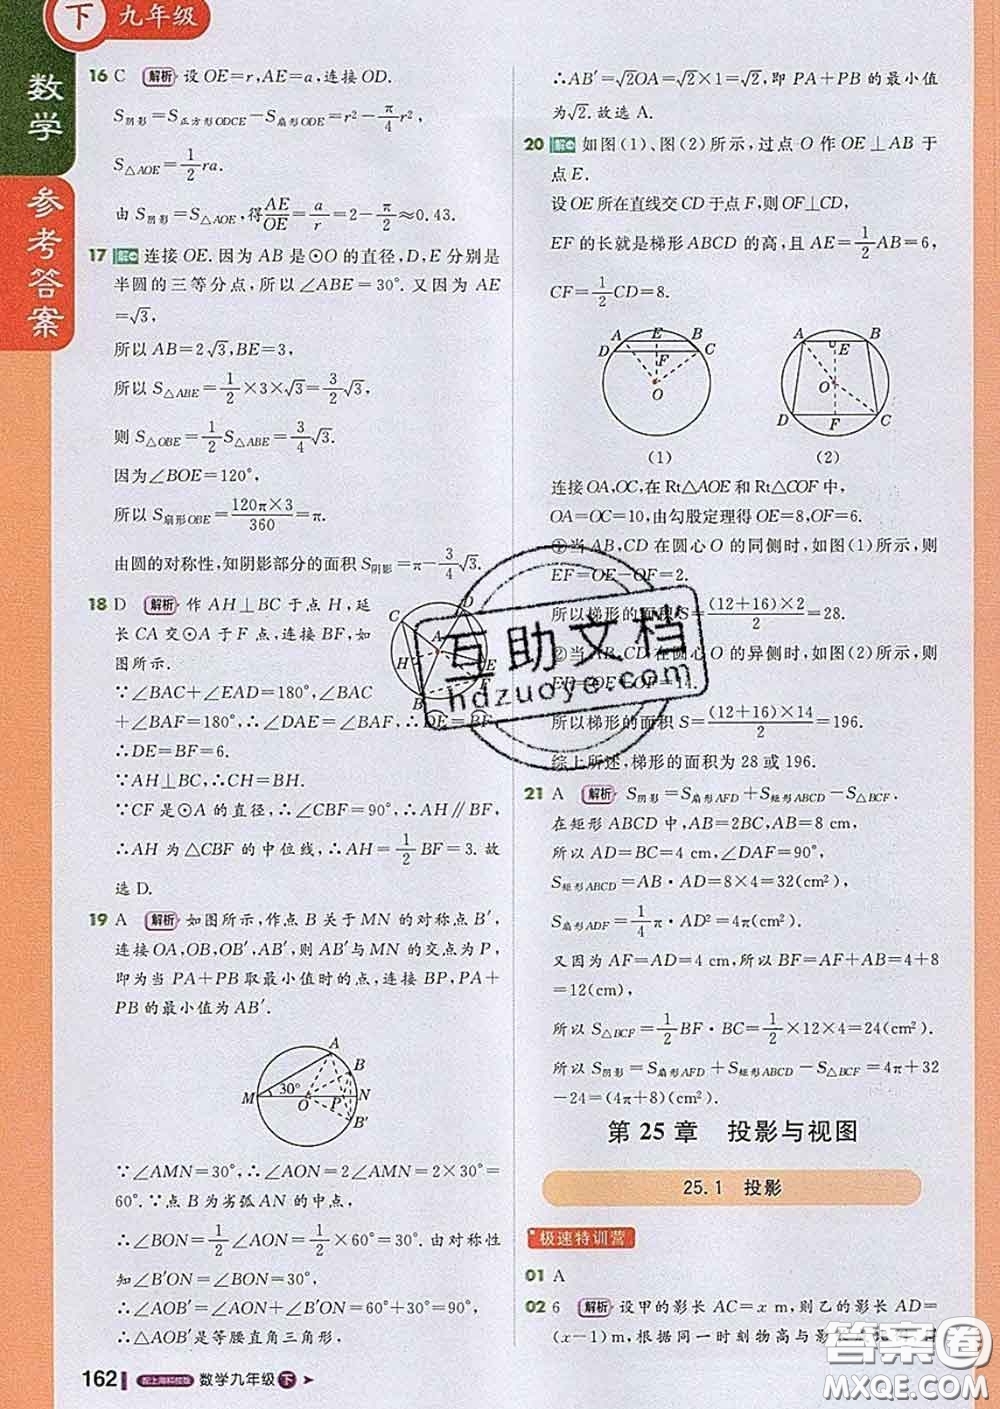 下 九年级
数学
参考答案
16 C 解析 设OE=r,AE=a,连接OD.
S阴影=S正方形ODCE-S扇形ODE=r²-π/4 r²,
S△AOE=1/2 ra.
由S阴影=S△AOE,得AE/OE=a/r=2-π/2≈0.43.
17 解 连接OE.因为AB是⊙O的直径,D,E分别是
半圆的三等分点,所以∠ABE=30°.又因为AE
=√3,
所以AB=2√3,BE=3,
所以S△ABE=1/2×3×√3=3/2√3.
则S△OBE=1/2S△ABE=3/4√3.
因为∠BOE=120°,
所以S扇形OBE=120π×3/360=π.
由圆的对称性,知阴影部分的面积S阴影=π-3/4√3.
18 D 解析 作AH⊥BC于点H,延
长CA交⊙A于F点,连接BF,如
图所示.
∵∠BAC+∠EAD=180°,∠BAC
+∠BAF=180°,∴∠DAE=∠BAF,∴DE=BF,
∴DE=BF=6.
∵AH⊥BC,∴CH=BH.
∵CF是⊙A的直径,∴∠CBF=90°,∴AH∥BF,
∴AH为△CBF的中位线,∴AH=1/2BF=3.故
选D.
C D A H E B F
19 A 解析 如图所示,作点B关于MN的对称点B′,
连接OA,OB,OB′,AB′,则AB′与MN的交点为P,
即为当PA+PB取最小值时的点,连接BP,PA+
PB的最小值为AB′.
A B M 30° O P N B′
∵∠AMN=30°,∴∠AON=2∠AMN=2×30°
=60°.∵点B为劣弧AN的中点,
∴∠BON=1/2∠AON=1/2×60°=30°.由对称性
知∠B′ON=∠BON=30°,
∴∠AOB′=∠AON+∠B′ON=60°+30°=90°,
∴△AOB′是等腰直角三角形,
∴AB′=√2OA=√2×1=√2,即PA+PB的最小值
为√2.故选A.
20 解 如图(1)、图(2)所示,过点O作OE⊥AB于
点E.
设OE所在直线交CD于点F,则OF⊥CD,
EF的长就是梯形ABCD的高,且AE=1/2AB=6,
CF=1/2CD=8.
A E B D F C O
A B E O D F C
(1) (2)
连接OA,OC,在Rt△AOE和Rt△COF中,
OA=OC=10,由勾股定理得OE=8,OF=6.
①当AB,CD在圆心O的同侧时,如图(1)所示,则
EF=OE-OF=2.
所以梯形的面积S=(12+16)×2/2=28.
②当AB,CD在圆心O的异侧时,如图(2)所示,则
EF=OE+OF=14.
所以梯形的面积S=(12+16)×14/2=196.
综上所述,梯形的面积为28或196.
21 A 解析 S阴影=S扇形AFD+S矩形ABCD-S△BCF.
在矩形ABCD中,AB=2BC,AB=8 cm,
所以AD=BC=4 cm,∠DAF=90°,
S矩形ABCD=AB·AD=8×4=32(cm²),
S扇形ADF=1/4π·AD²=4π(cm²).
又因为AF=AD=4 cm,所以BF=AF+AB=4+8
=12(cm),
所以S△BCF=1/2BF·BC=1/2×12×4=24(cm²).
所以S阴影=S扇形AFD+S矩形ABCD-S△BCF=4π+32
-24=(4π+8)(cm²).
第25章 投影与视图
25.1 投影
极速特训营
01 A
02 6 解析 设甲的影长AC=x m,则乙的影长AD=
(x-1)m,根据同一时刻物高与影
162 配上海科技版 数学九年级 下
互助文档
hdzuoye.com
答案圈
MXQE.COM